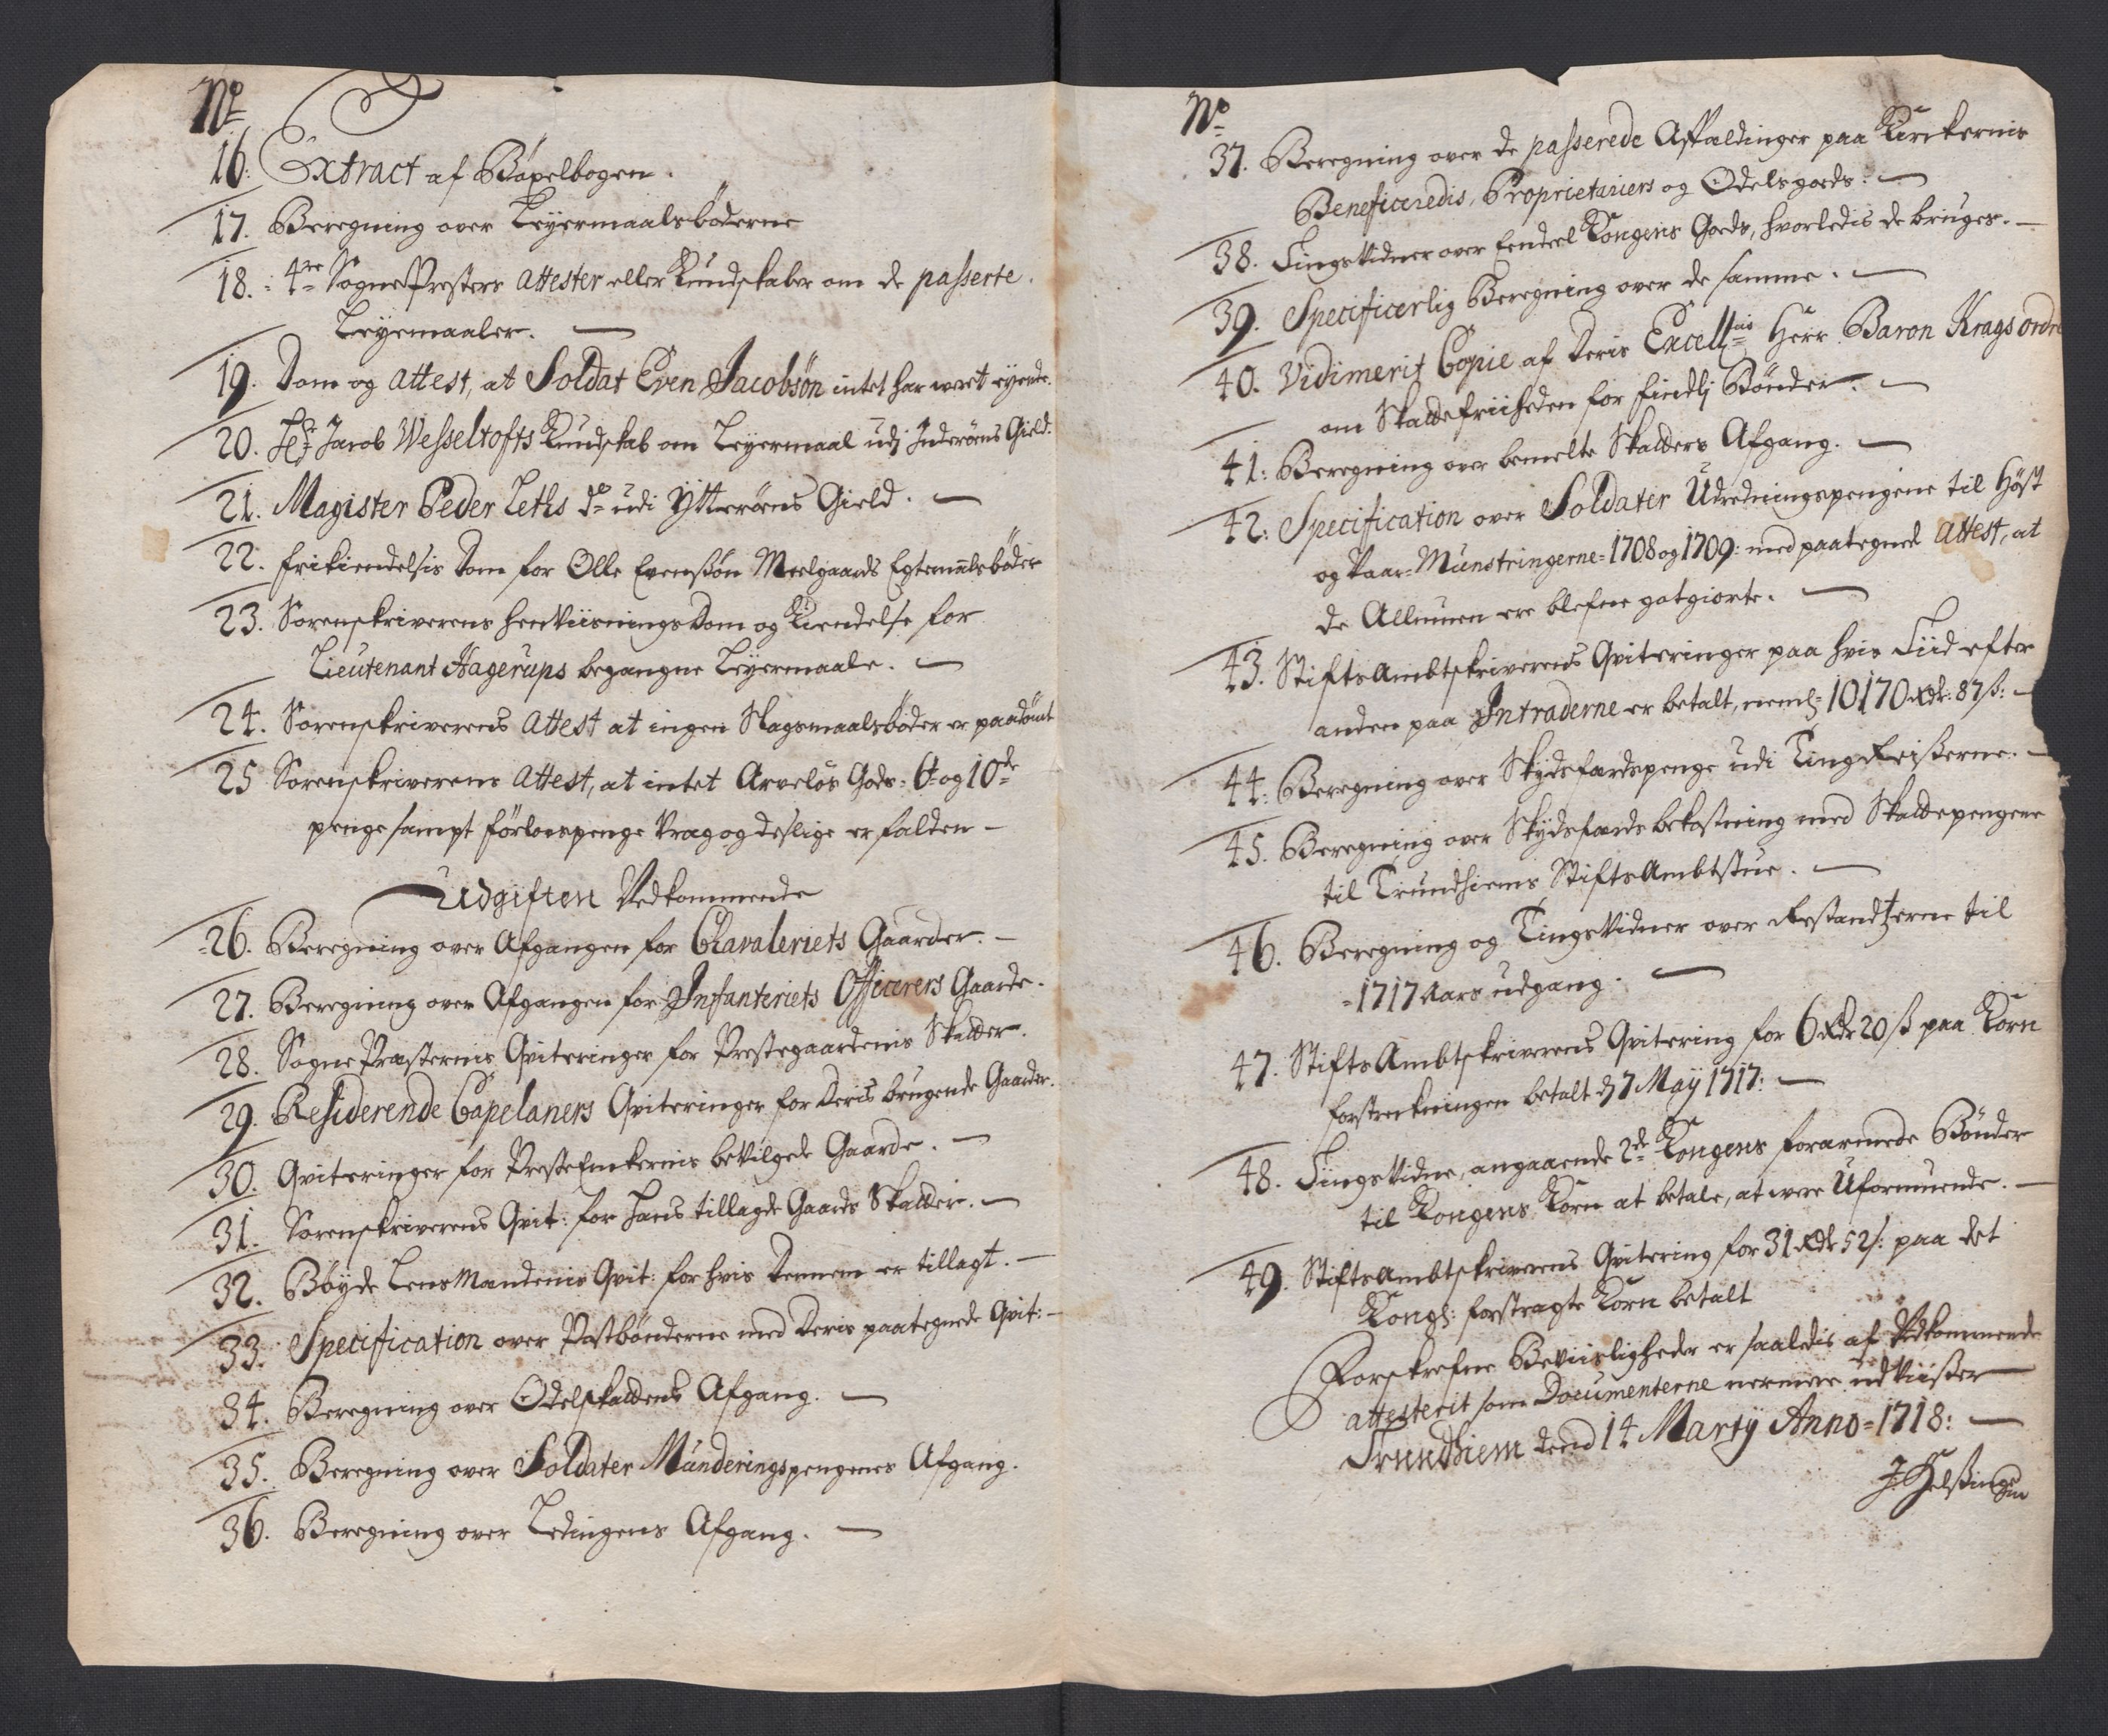 No
16. Extract af Bøxelbogen.
17. Beregning over Leyermaalsbøderne
18. 4re SognePresters attester eller Kundskaber om de passerte
Leyermaaler.
19. Dom og attest, at Soldat Even Jacobsøn intet har været eyende.
20. Hr Jacob Wesseltofts Kundskab om Leyermaal udj Inderøens Gield.
21. Magister Peder Leths do udi Ytterøens Gield.
22. frikiendelsis Dom for Olle Evensøn Meelgaards Egtemaalsbøder
23. Sorenskriverens henviisnings Dom og Kiendelse for
Lieutenant Hagerups begangne Leyermaale.
24. Sorenskriverens attest at ingen Slagsmaalsbøder er paadømt
25 Sorenskriverens attest, at intet Arveløs Gods: 6te og 10de
penge sampt førlovspenge Vrag og deslige er falden -
Udgiften Vedkommende
26. Beregning over Afgangen for Chavaleriets Gaarder.
27. Beregning over Afgangen for Infanteriets Officerers Gaarde.
28. Sogne Præsternis Qviteringer for Prestegaardenis Skatter.
29. Residerende Capelaners Qviteringer for deris brugende Gaarder.
30. Qviteringer for PresteEnkernis bevilgede Gaarde.
31. Sorenskriverens Qvit: for hans tillagde Gaards Skatter.
32. Bøyde LensMandenis Qvit: for hvis dennem er tillagt.
33. Specification over Postbønderne med deris paategnede Qvit:
34. Beregning over Odelskattens Afgang.
35. Beregning over Soldater Munderingspengenes Afgang.
36. Beregning over Ledingens Afgang.
No
37. Beregning over de passerede Affældinger paa Kirckernis
Beneficeredis, Proprietariers og Odelsgoeds.
38. Tingsvidner over Eendeel Kongens Goeds, hvorledis de bruges.
39. Specificerlig Beregning over de samme.
40. Vidimerit Copie af deris Excellces Herr Baron Krags ordre
om Skattefriiheden for findlj Bønder.
41: Beregning over bemelte Skatters Afgang.
42: Specification over Soldater Udredningspengene til Høst
og Vaar-Munstringerne 1708 og 1709: med paategnede attest, at
de Allmuen ere blefne gotgiorte.
43. StiftsAmbtskriverens Qviteringer paa hvis Tiid efter
anden paa Intraderne er betalt, neml: 10170 rdr: 87 s:
44: Beregning over Skydsfærdspenge udi Ting Reiserne.
45. Beregning over Skydsferds bekostning med Skattepengene
til Trundhiems StiftsAmbtstue.
46. Beregning og Tingsvidner over Restandzerne til
1717 Aars udgang.
47. StiftsAmbtskriverens Qvitering for 6 rdr 20 s paa Korn
forstrekningen betalt d 7 Maÿ 1717:
48. Tiingsvidne, angaaende 2de Kongens forarmede Bønder
til Kongens Korn at betale, at være Uformuende.
49. StiftsAmbtskriverens Qvitering for 31 rdr 52 s: paa det
Kongl: forstragte Korn betalt
Forskrefne Beviisligheder er saaledis af Vedkommende
attesterit som Documenterne nermere udviiser
Trundhiem dend 14 Martÿ Anno 1718: